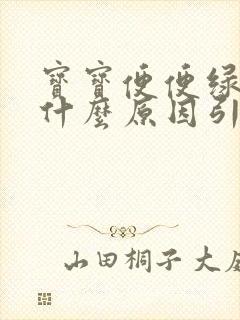 寶寶便便綠
什麼原因引
山田桐子大